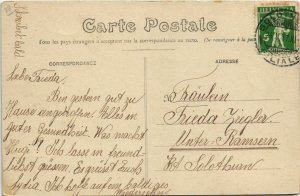 Carte Postale
Tous les pays étrangers n'acceptent pas la correspondance au recto.
CORRESPONDANCE
ADRESSE
Liebe Frieda
Bin gestern gut zu
Hause angekommen. Alles in
guter Gesundheit. Was macht
Hugi? Ich lasse in freund-
lichst grüssen. Es grüsst dich
Lydia
Fräulein
Frieda Ziegler
Unter-Ramsern
Kt. Solothurn